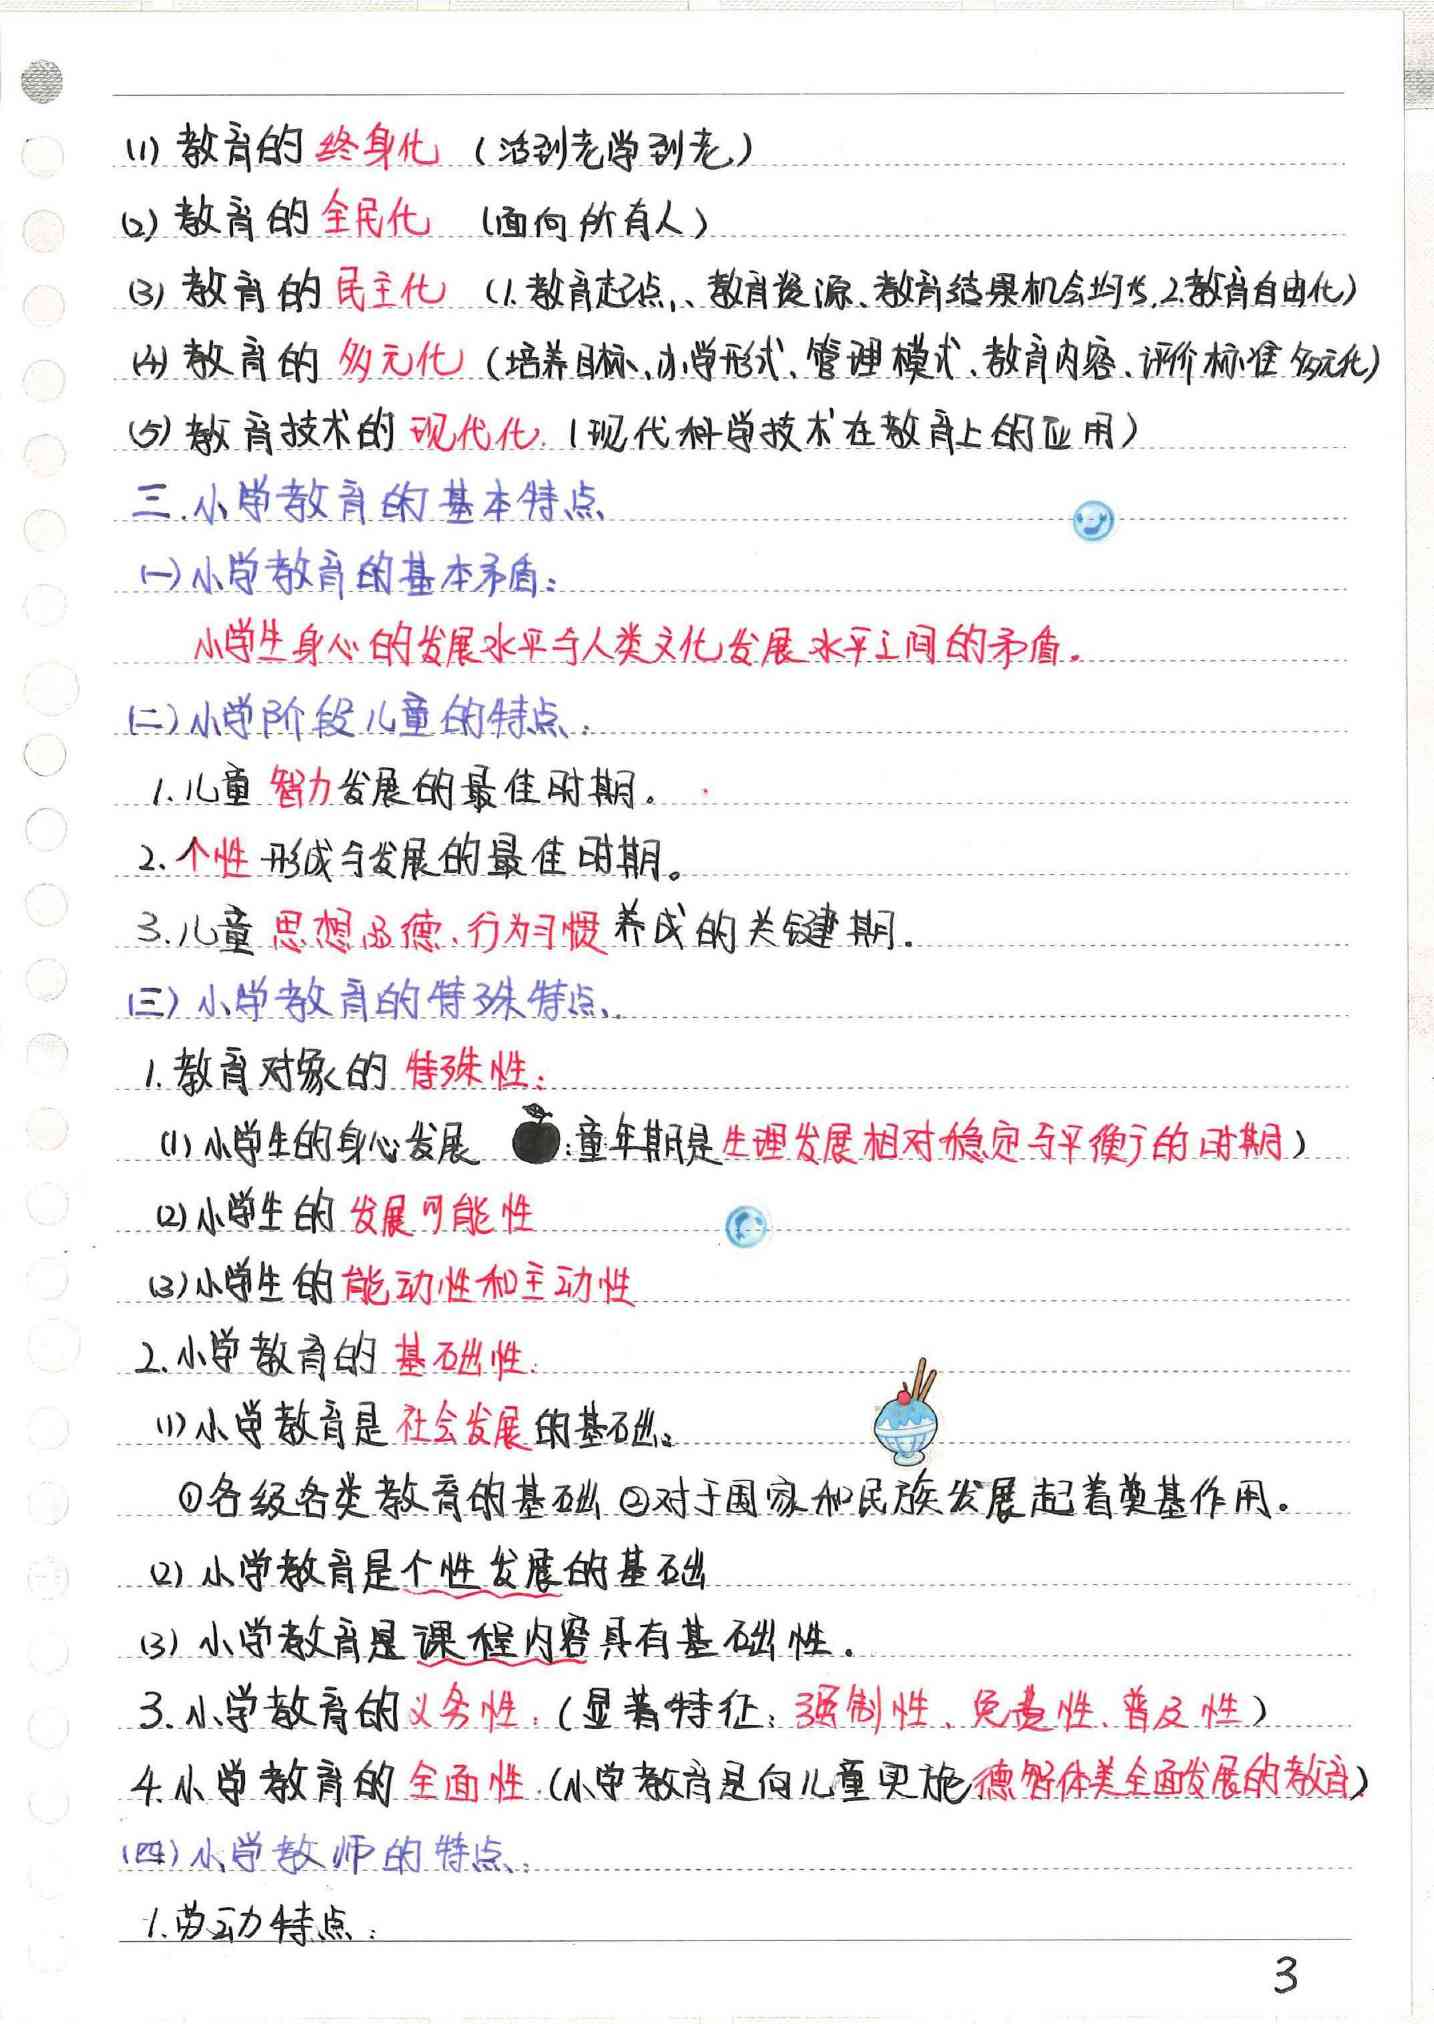 (1) 教育的终身化 (活到老学到老)
(2) 教育的全民化 (面向所有人)
(3) 教育的民主化 (1.教育起点、教育资源、教育结果机会均等,2.教育自由化)
(4) 教育的多元化 (培养目标、办学形式、管理模式、教育内容、评价标准多元化)
(5) 教育技术的现代化.(现代科学技术在教育上的应用)
三.小学教育的基本特点
(一)小学教育的基本矛盾:
小学生身心的发展水平与人类文化发展水平之间的矛盾。
(二)小学阶段儿童的特点:
1.儿童智力发展的最佳时期。
2.个性形成与发展的最佳时期。
3.儿童思想品德、行为习惯养成的关键期.
(三)小学教育的特殊特点.
1.教育对象的特殊性:
(1)小学生的身心发展 :童年期是生理发展相对稳定与平衡的时期)
(2)小学生的发展可能性
(3)小学生的能动性和主动性
2.小学教育的基础性:
(1)小学教育是社会发展的基础。
①各级各类教育的基础②对于国家和民族发展起着奠基作用。
(2)小学教育是个性发展的基础
(3)小学教育是课程内容具有基础性.
3.小学教育的义务性:(显著特征:强制性、免费性、普及性)
4.小学教育的全面性.(小学教育是向儿童实施德智体美全面发展的教育)
(四)小学教师的特点:
1.劳动特点:
3